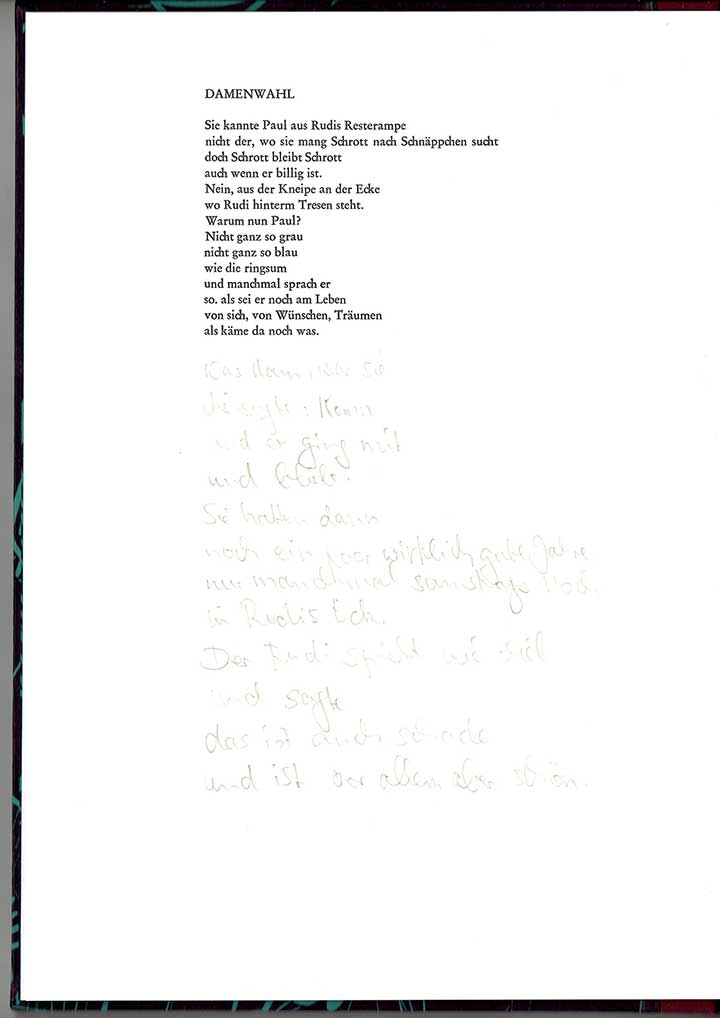 DAMENWAHL
Sie kannte Paul aus Rudis Resterampe
nicht der, wo sie mang Schrott nach Schnäppchen sucht
doch Schrott bleibt Schrott
auch wenn er billig ist.
Nein, aus der Kneipe an der Ecke
wo Rudi hinterm Tresen steht.
Warum nun Paul?
Nicht ganz so grau
nicht ganz so blau
wie die ringsum
und manchmal sprach er
so. als sei er noch am Leben
von sich, von Wünschen, Träumen
als käme da noch was.
Was kam, war sie
die sagte: Komm
und er ging mit
und blieb.
Sie hatten dann
noch ein paar wirklich gute Jahre
nur manchmal samstags noch
in Rudis Eck.
Der Rudi spricht wie
und sagte
das ist auch schade
und ist vor allem aber schön.